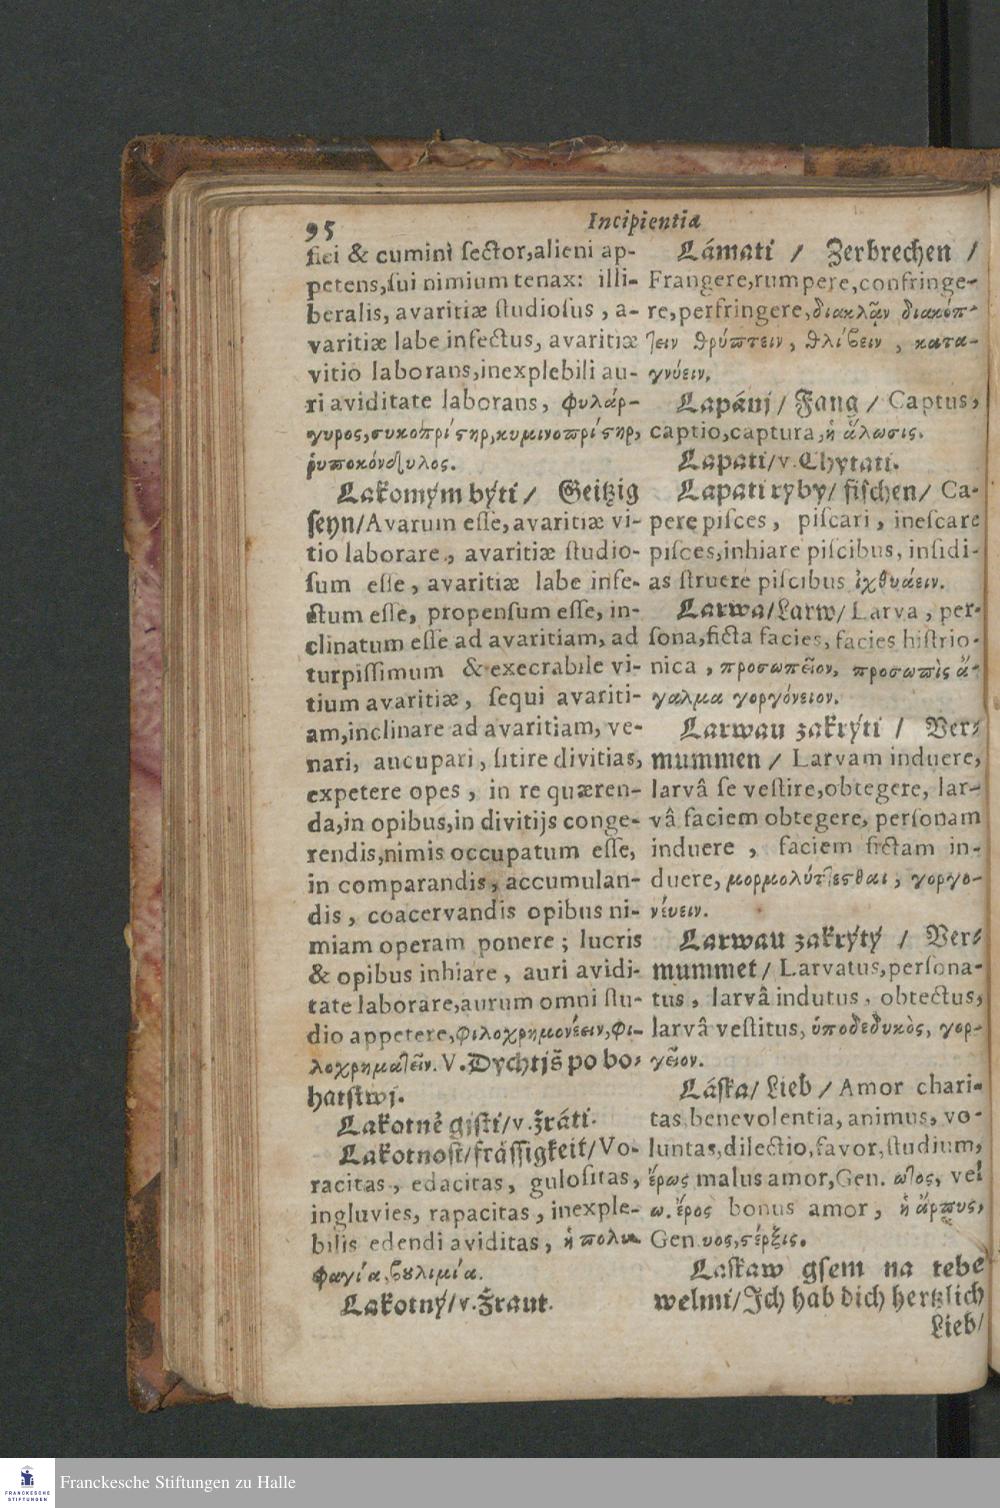 95
Incipientia
fici & cumini ſector,alieni ap-
petens,ſui nimium tenax: illi-
beralis, avaritiæ ſtudioſus, a-
varitiæ labe infectus, avaritiæ
vitio laborans,inexplebili au-
ri aviditate laborans, φυλάρ-
γυρος,συκοπρίςηρ,κυμινοπρίςηρ,
ῥυποκόνδυλος.
Lakomým býti / Geitzig
ſeyn/Avarum eſſe,avaritiæ vi-
tio laborare, avaritiæ ſtudio-
ſum eſſe, avaritiæ labe infe-
ctum eſſe, propenſum eſſe, in-
clinatum eſſe ad avaritiam, ad
turpiſſimum & execrabile vi-
tium avaritiæ, ſequi avariti-
am,inclinare ad avaritiam, ve-
nari, aucupari, ſitire divitias,
expetere opes, in re quæren-
da,in opibus,in divitijs conge-
rendis,nimis occupatum eſſe,
in comparandis, accumulan-
dis, coacervandis opibus ni-
miam operam ponere; lucris
& opibus inhiare, auri avidi-
tate laborare,aurum omni ſtu-
dio appetere,φιλοχρημονέειν,φι-
λοχρηματεῖν. V. Dychtjš po bo-
hatſtwj.
Lakotně giſti/v.žráti.
Lakotnoſt/fräſſigkeit/Vo-
racitas, edacitas, guloſitas,
ingluvies, rapacitas, inexple-
bilis edendi aviditas, ἡ πολυ
φαγία,βουλιμία.
Lakotný/v.Žraut.
Lámati / Zerbrechen /
Frangere,rumpere,confringe-
re,perfringere,διακλᾷν διακόπ-
τειν θρύπτειν, θλίβειν, κατα-
γνύειν.
Lapánj / Fang / Captus,
captio,captura,ἡ ἅλωσις.
Lapati/v.Chytati.
Lapati ryby/ fiſchen/ Ca-
pere piſces, piſcari, ineſcare
piſces,inhiare piſcibus, inſidi-
as ſtruere piſcibus ἰχθυάειν.
Larwa/Larw/ Larva, per-
ſona,ficta facies, facies hiſtrio-
nica, προσωπεῖον, προσωπὶς ἄ-
γαλμα γοργόνειον.
Larwau zakrýti / Ver-
mummen / Larvam induere,
larvâ ſe veſtire,obtegere, lar-
vâ faciem obtegere, perſonam
induere, faciem fictam in-
duere, μορμολύττεσθαι, γοργο-
νέυειν.
Larwau zakrýtý / Ver-
mummet / Larvatus,perſona-
tus, larvâ indutus, obtectus,
larvâ veſtitus, ὑποδεδυκὸς, γορ-
γεῖον.
Láſka/ Lieb / Amor chari-
tas,benevolentia, animus, vo-
luntas,dilectio,favor,ſtudium,
ἔρως malus amor,Gen. ωτος, vel
ω. ἔρος bonus amor, ἡ ἄρπυς,
Gen υος,ςέρξις.
Laſkaw gſem na tebe
welmi/Ich hab dich hertzlich
Lieb/
Franckesche Stiftungen zu Halle
FRANCKESCHE
STIFTUNGEN